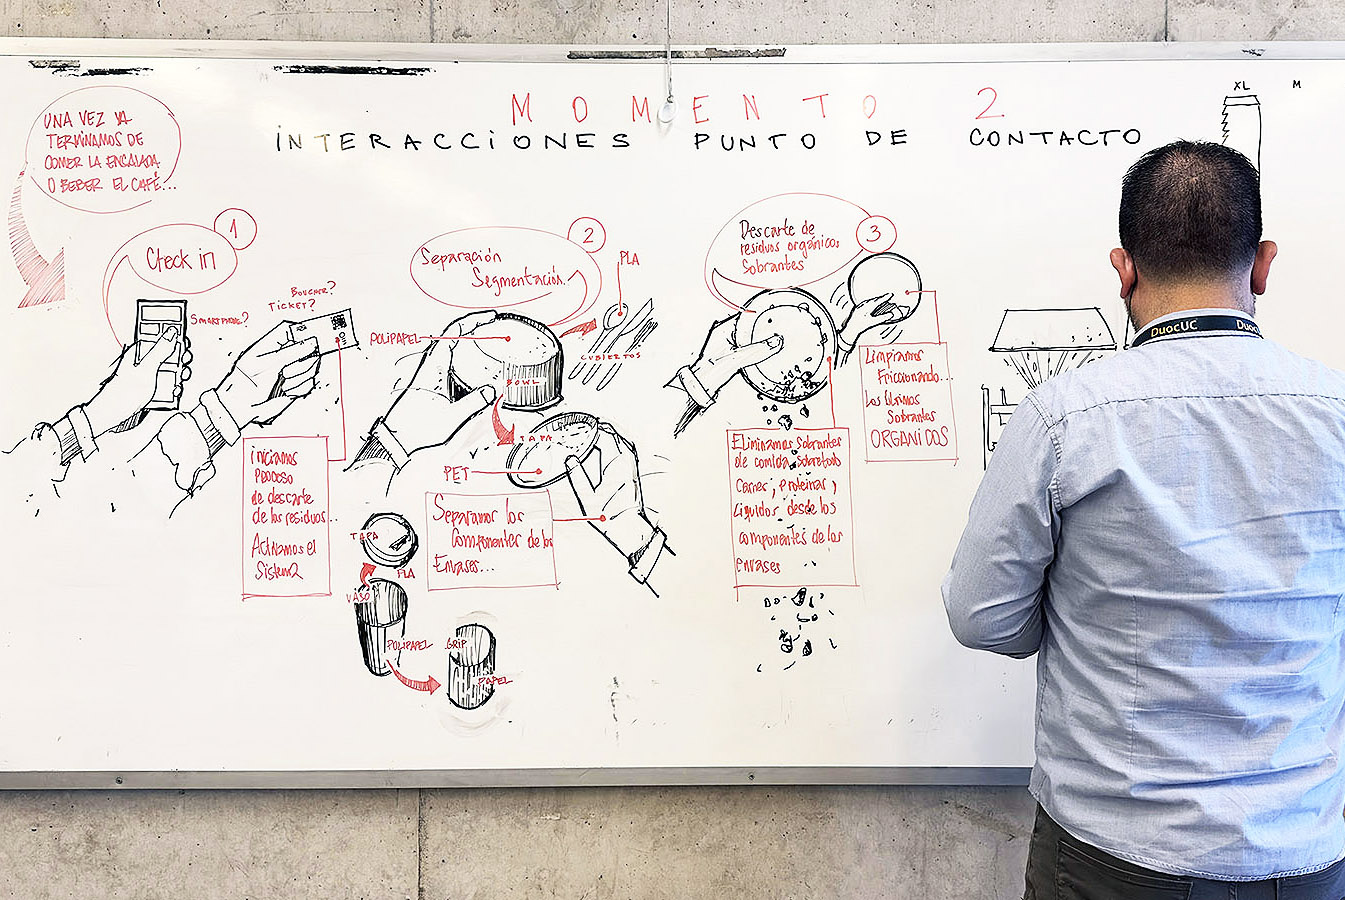 MOMENTO 2
INTERACCIONES PUNTO DE CONTACTO
XL
M
UNA VEZ YA
TERMINAMOS DE
COMER LA ENSALADA
O BEBER EL CAFÉ...
Check in
1
SMARTPHONE?
BOUCHER?
TICKET?
iniciamos
proceso
de descarte
de los residuos...
Activamos el
Sistema
Separación
Segmentación.
2
PLA
POLIPAPEL
CUBIERTOS
BOWL
TAPA
PET
Separamos los
Componentes de los
Envases...
TAPA
PLA
VASO
POLIPAPEL
GRIP
PAPEL
Descarte de
residuos orgánicos
Sobrantes
3
Limpiamos
Friccionando...
Los últimos
Sobrantes
ORGANICOS
Eliminamos sobrantes
de comida sobretodo
Carnes, proteinas y
Liquidos desde los
componentes de los
envases
DuocUC
Duoc